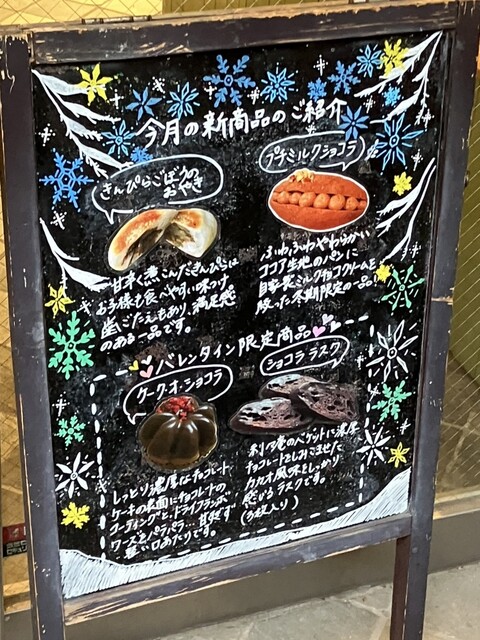 今月の新商品のご紹介
きんぴらごぼうの
おやき
甘辛く煮こんだきんぴらは
お子様も食べやすい味つけ
歯ごたえもあり、満足感
のある一品です。
プチミルクショコラ
ふわふわやわらかい
ココア生地のパンに
自家製ミルクチョコクリームを
絞った冬期限定の一品!
バレンタイン限定商品
ケーク・オ・ショコラ
しっとり濃厚なチョコレート
ケーキの表面にチョコレートの
コーティングと、ドライフランボ
ワーズをパラパラ…甘軽ず
軽い口あたりです。
ショコラ ラスク
のバケットに濃厚
チョコレートをしみこませた
カカオ風味をしっかり
感じるラスクです。
(3枚入り)